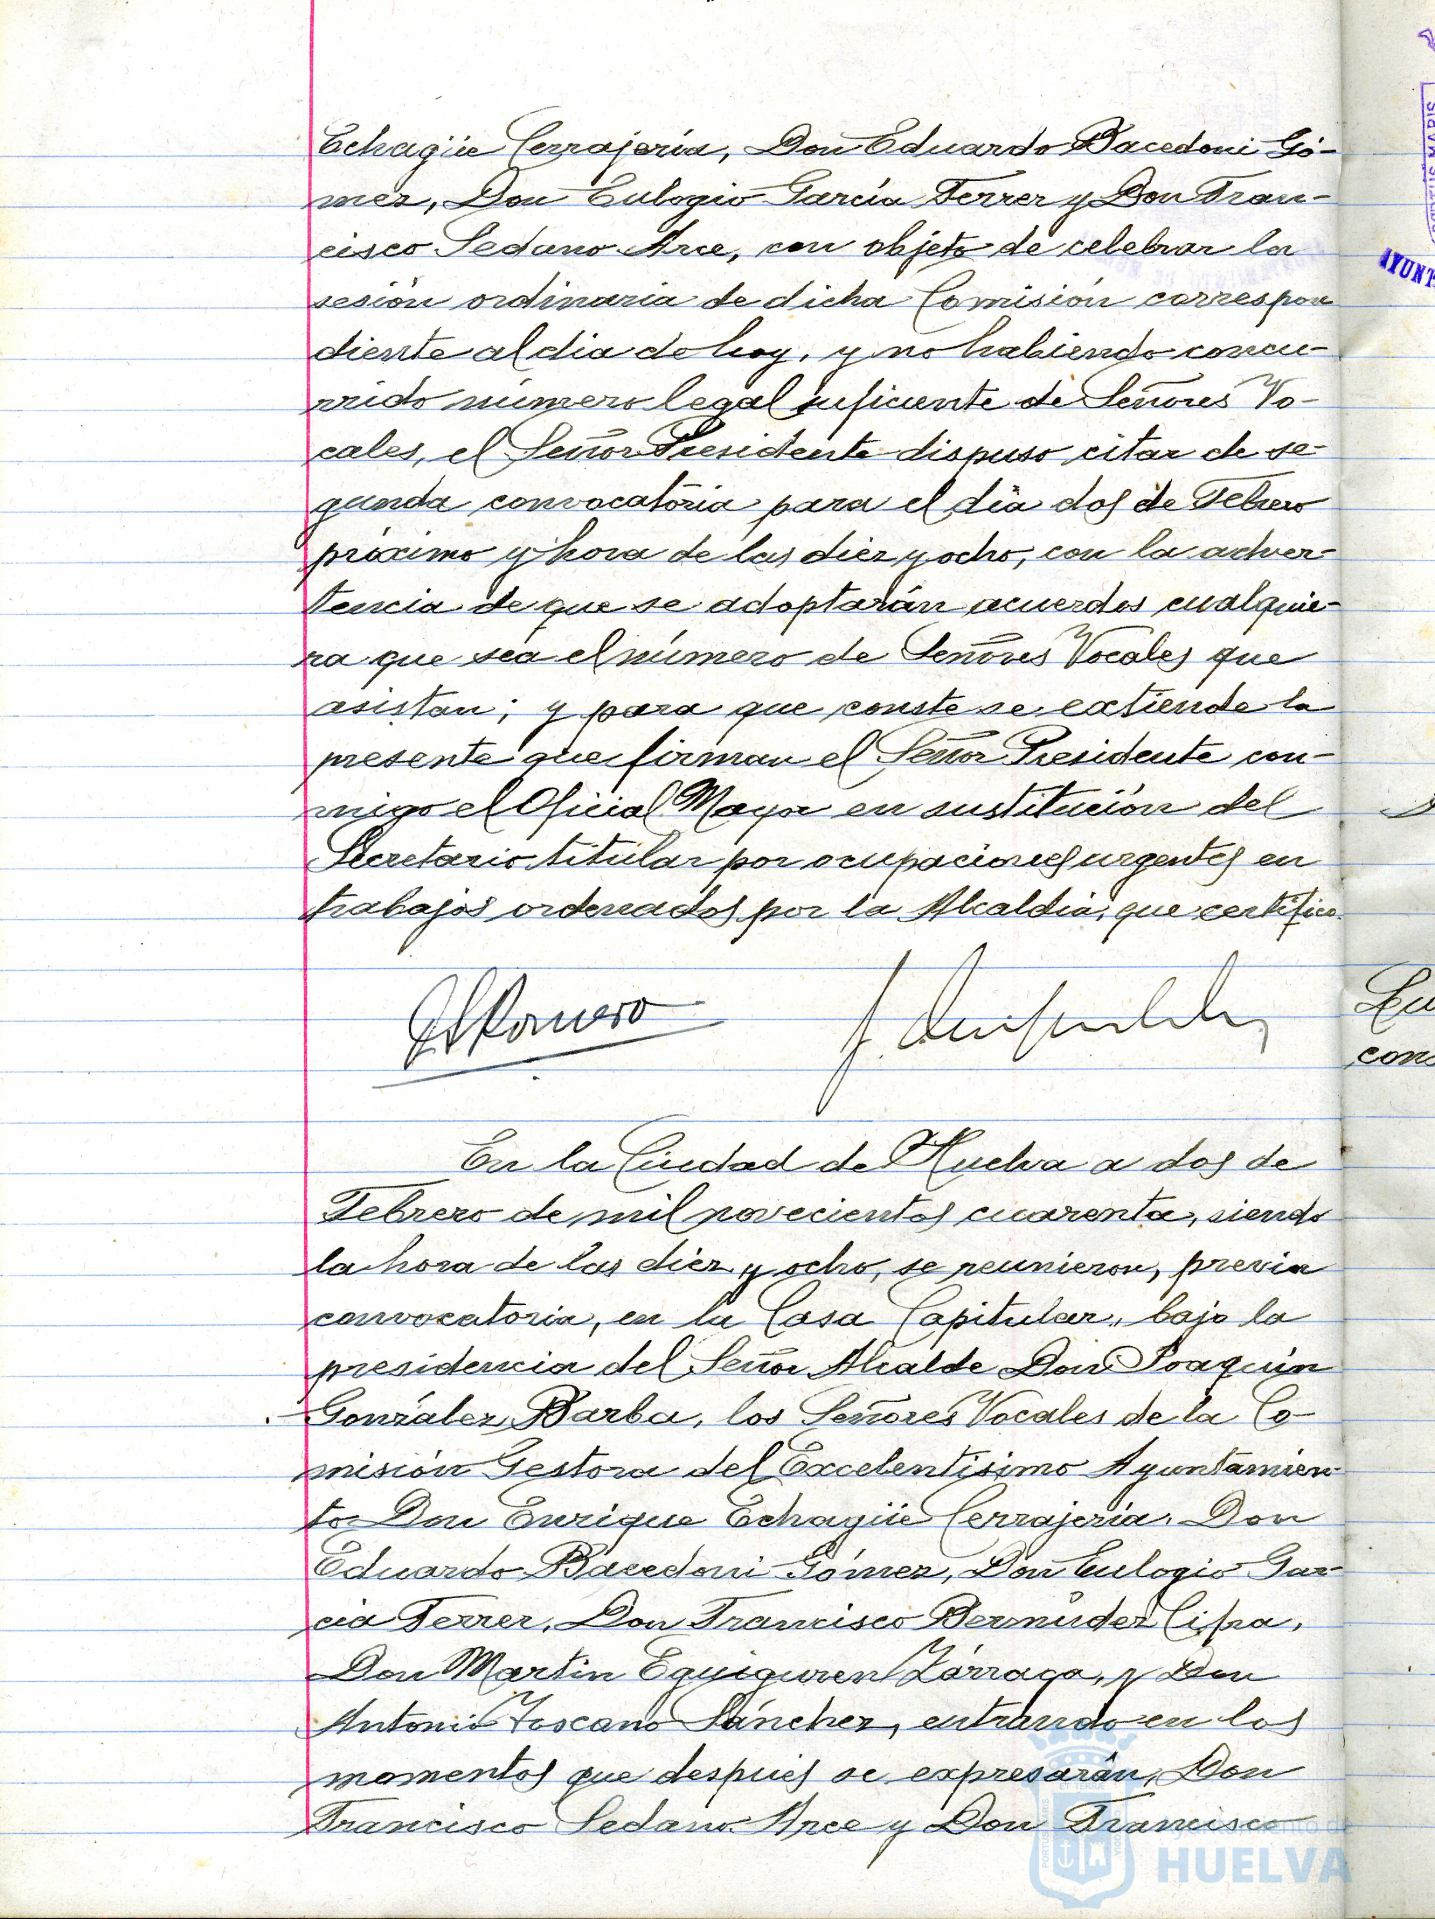 Echagüe Cerrajería, Don Eduardo Bacedoni Gó-
mez, Don Eulogio García Ferrer y Don Fran-
cisco Sedano Arce, con objeto de celebrar la
sesión ordinaria de dicha Comisión correspon
diente al dia de hoy, y no habiendo concu-
rrido número legal suficiente de Señores Vo-
cales, el Señor Presidente dispuso citar de se-
gunda convocatoria para el día dos de Febrero
próximo y hora de las diez y ocho, con la adver-
tencia de que se adoptarán acuerdos cualquie-
ra que sea el número de Señores Vocales que
asistan; y para que conste se extiende la
presente que firman el Señor Presidente con-
migo el Oficial Mayor en sustitución del
Secretario titular por ocupaciones urgentes en
trabajos ordenados por la Alcaldia, que certifico.
Romero
En la Ciudad de Huelva a dos de
Febrero de mil novecientos cuarenta, siendo
la hora de las diez y ocho, se reunieron, previa
convocatoria, en la Casa Capitular, bajo la
presidencia del Señor Alcalde Don Joaquín
González Barba, los Señores Vocales de la Co-
misión Gestora del Excelentisimo Ayuntamien-
to Don Enrique Echagüe Cerrajería, Don
Eduardo Bacedoni Gómez, Don Eulogio Gar-
cia Ferrer, Don Francisco Bermúdez Cifra,
Don Martin Eguiguren Zárraga, y Don
Antonio Toscano Sánchez, entrando en los
momentos que después se expresarán, Don
Francisco Sedano Arce y Don Francisco
Ayuntamiento de
HUELVA